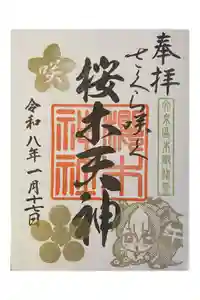 奉拝
さくら咲く
咲
桜木天神
櫻木神社
令和八年一月十七日